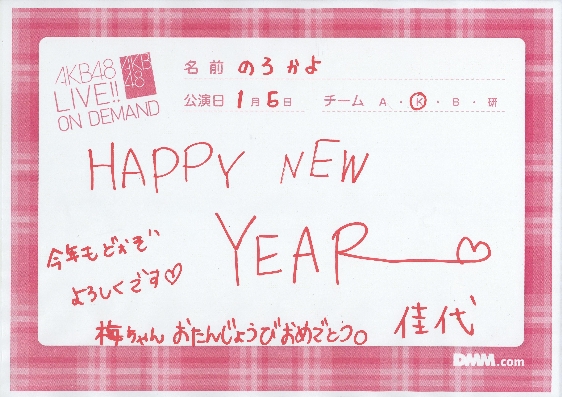 AKB48
LIVE!!
ON DEMAND
AKB
48
名前 のろかよ
公演日 1月6日 チーム A・K・B・研
HAPPY NEW
YEAR
今年もどかぞ
よろしくです♡
梅ちゃん おたんじょうびおめでとう。
佳代
DMM.com